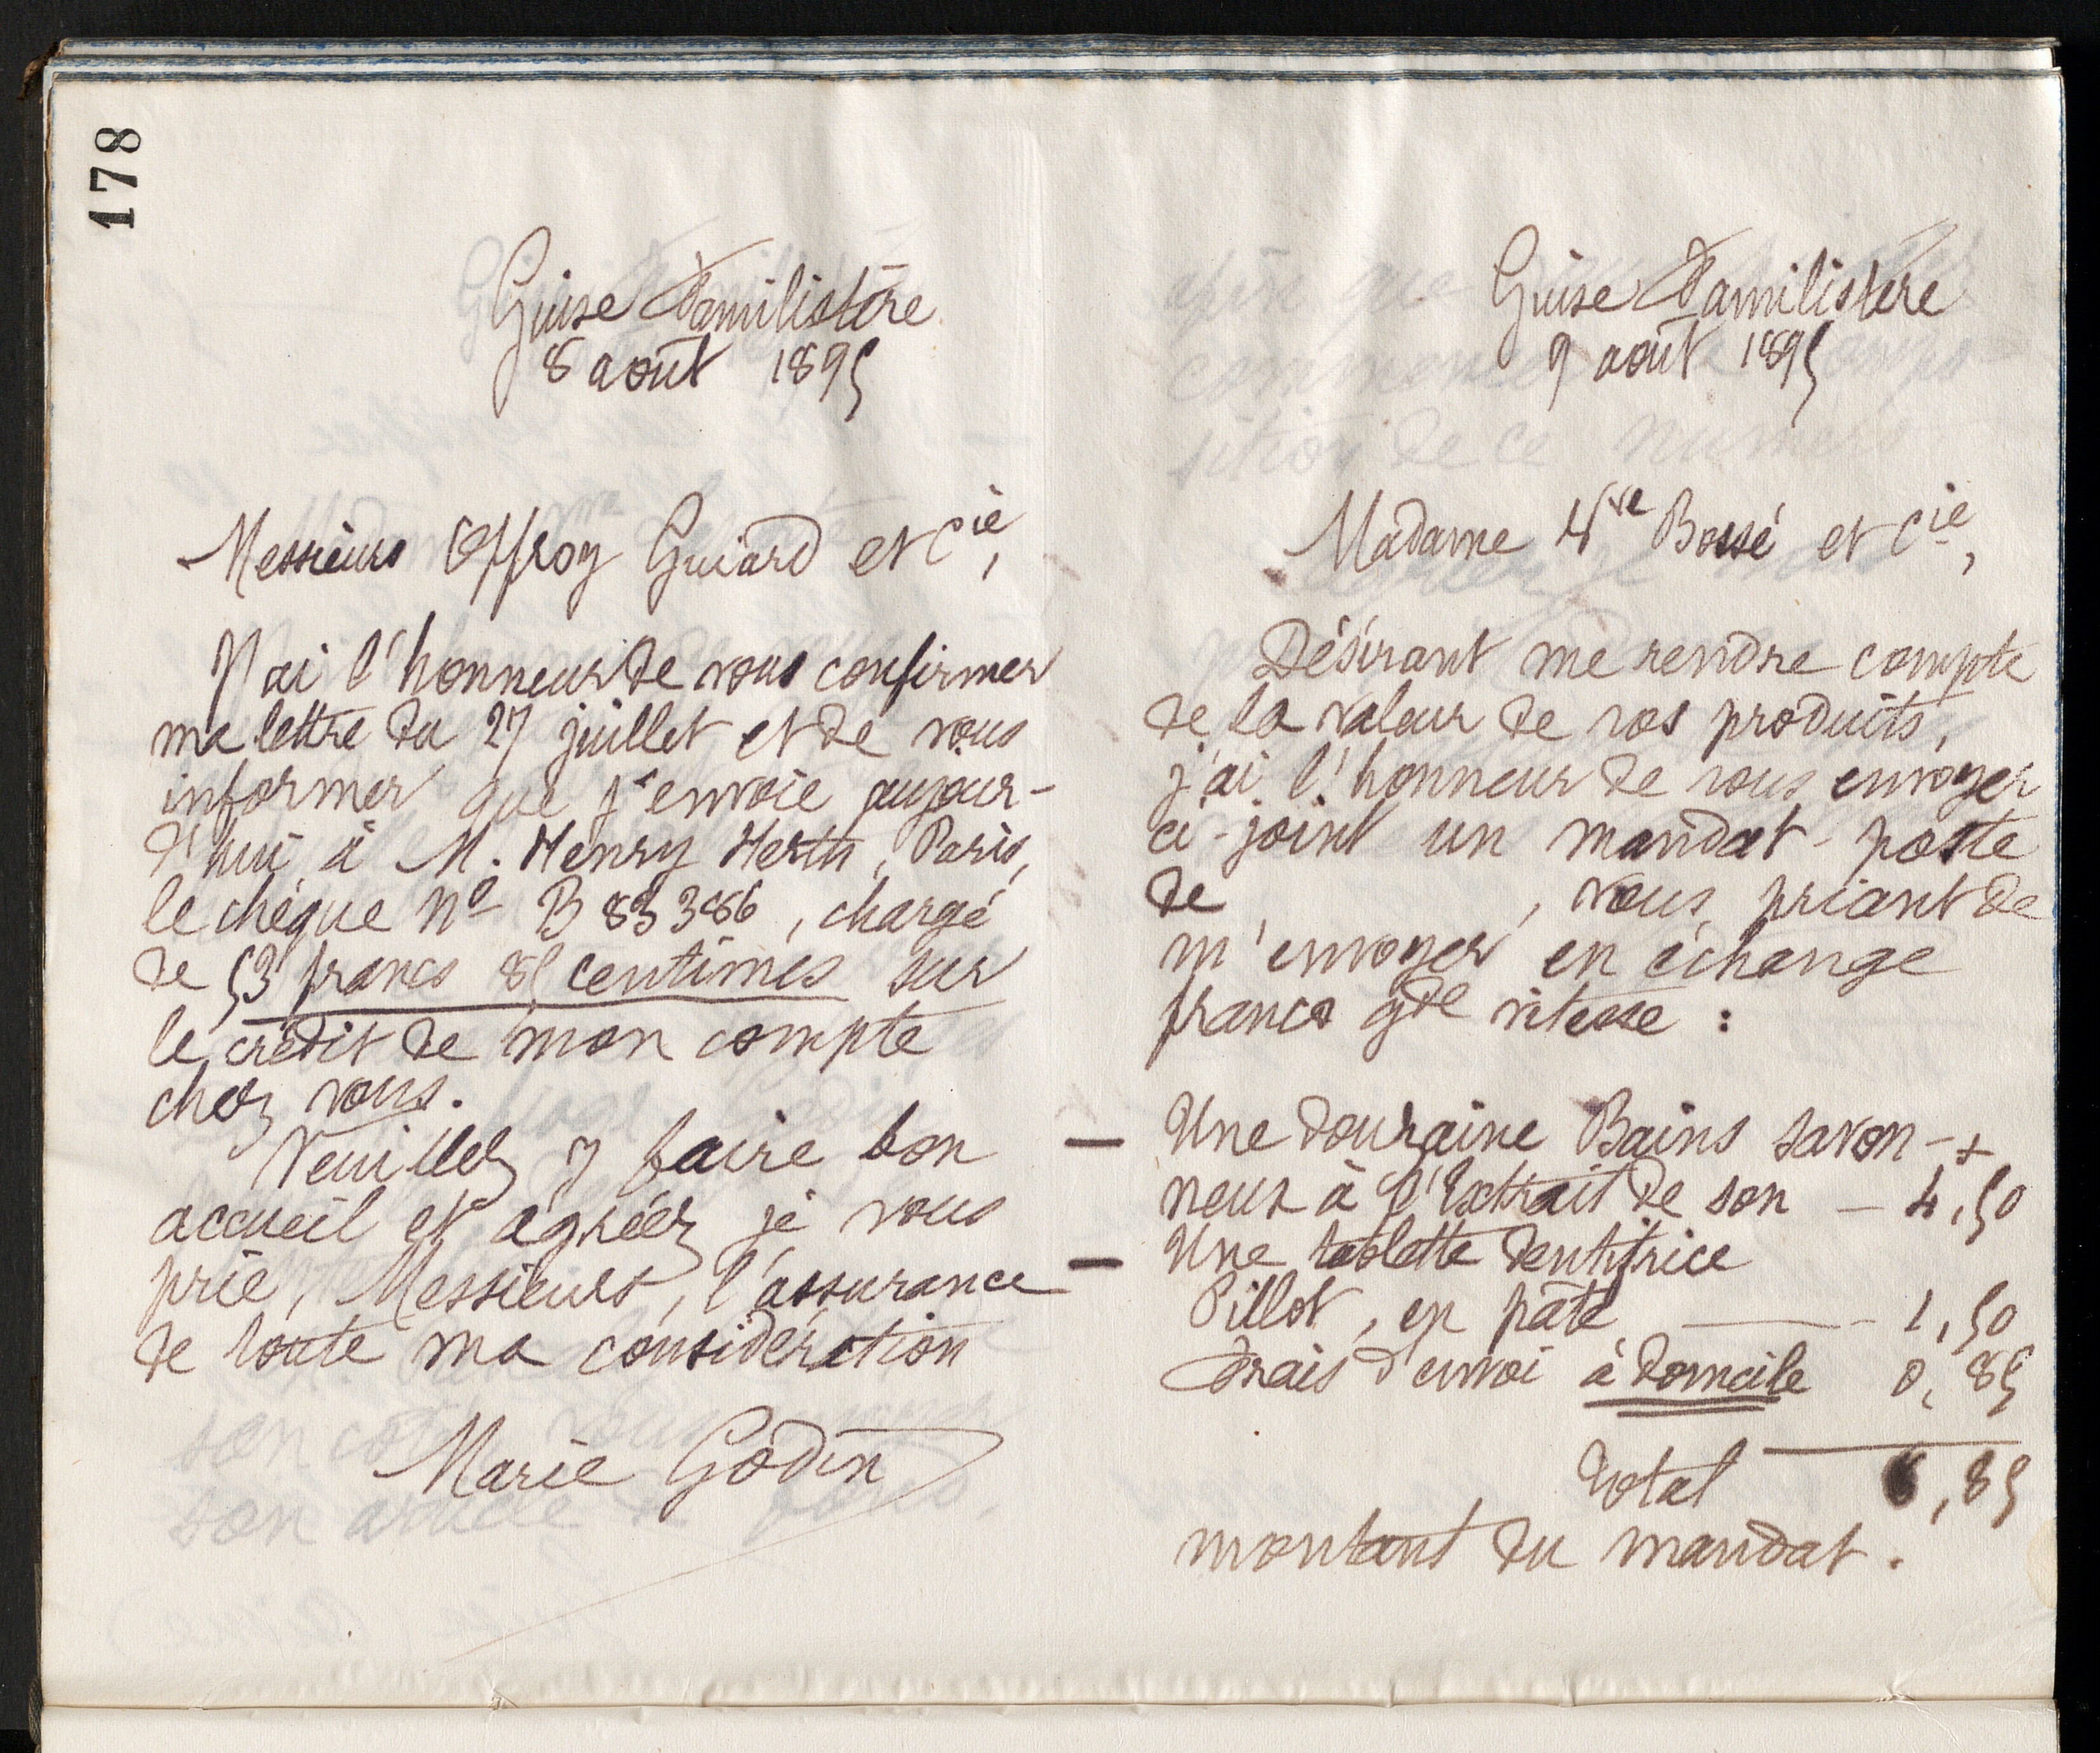 178
Guise Familistère
8 août 1895
Messieurs Offroy Guiard et Cie,
J'ai l'honneur de vous confirmer
ma lettre du 27 juillet et de vous
informer que j'envoie aujour-
d'hui à M. Henry Herth, Paris,
le chèque No B 83386, chargé
de 53 francs 85 centimes sur
le crédit de mon compte
chez vous.
Veuillez y faire bon
accueil et agréez, je vous
prie, Messieurs, l'assurance
de toute ma considération
Marie Godin
Guise Familistère
9 août 1895
Madame Vve Bossé et Cie,
Désirant me rendre compte
de la valeur de vos produits,
j'ai l'honneur de vous envoyer
ci-joint un mandat-poste
de , vous priant de
m'envoyer en échange
franco gde vitesse :
— Une douzaine Bains savon-
neux à l'Extrait de son — 4,50
— Une tablette dentifrice
Pillot, en pâte — 1,50
Frais d'envoi à domicile 0,85
Total 6,85
montant du mandat.